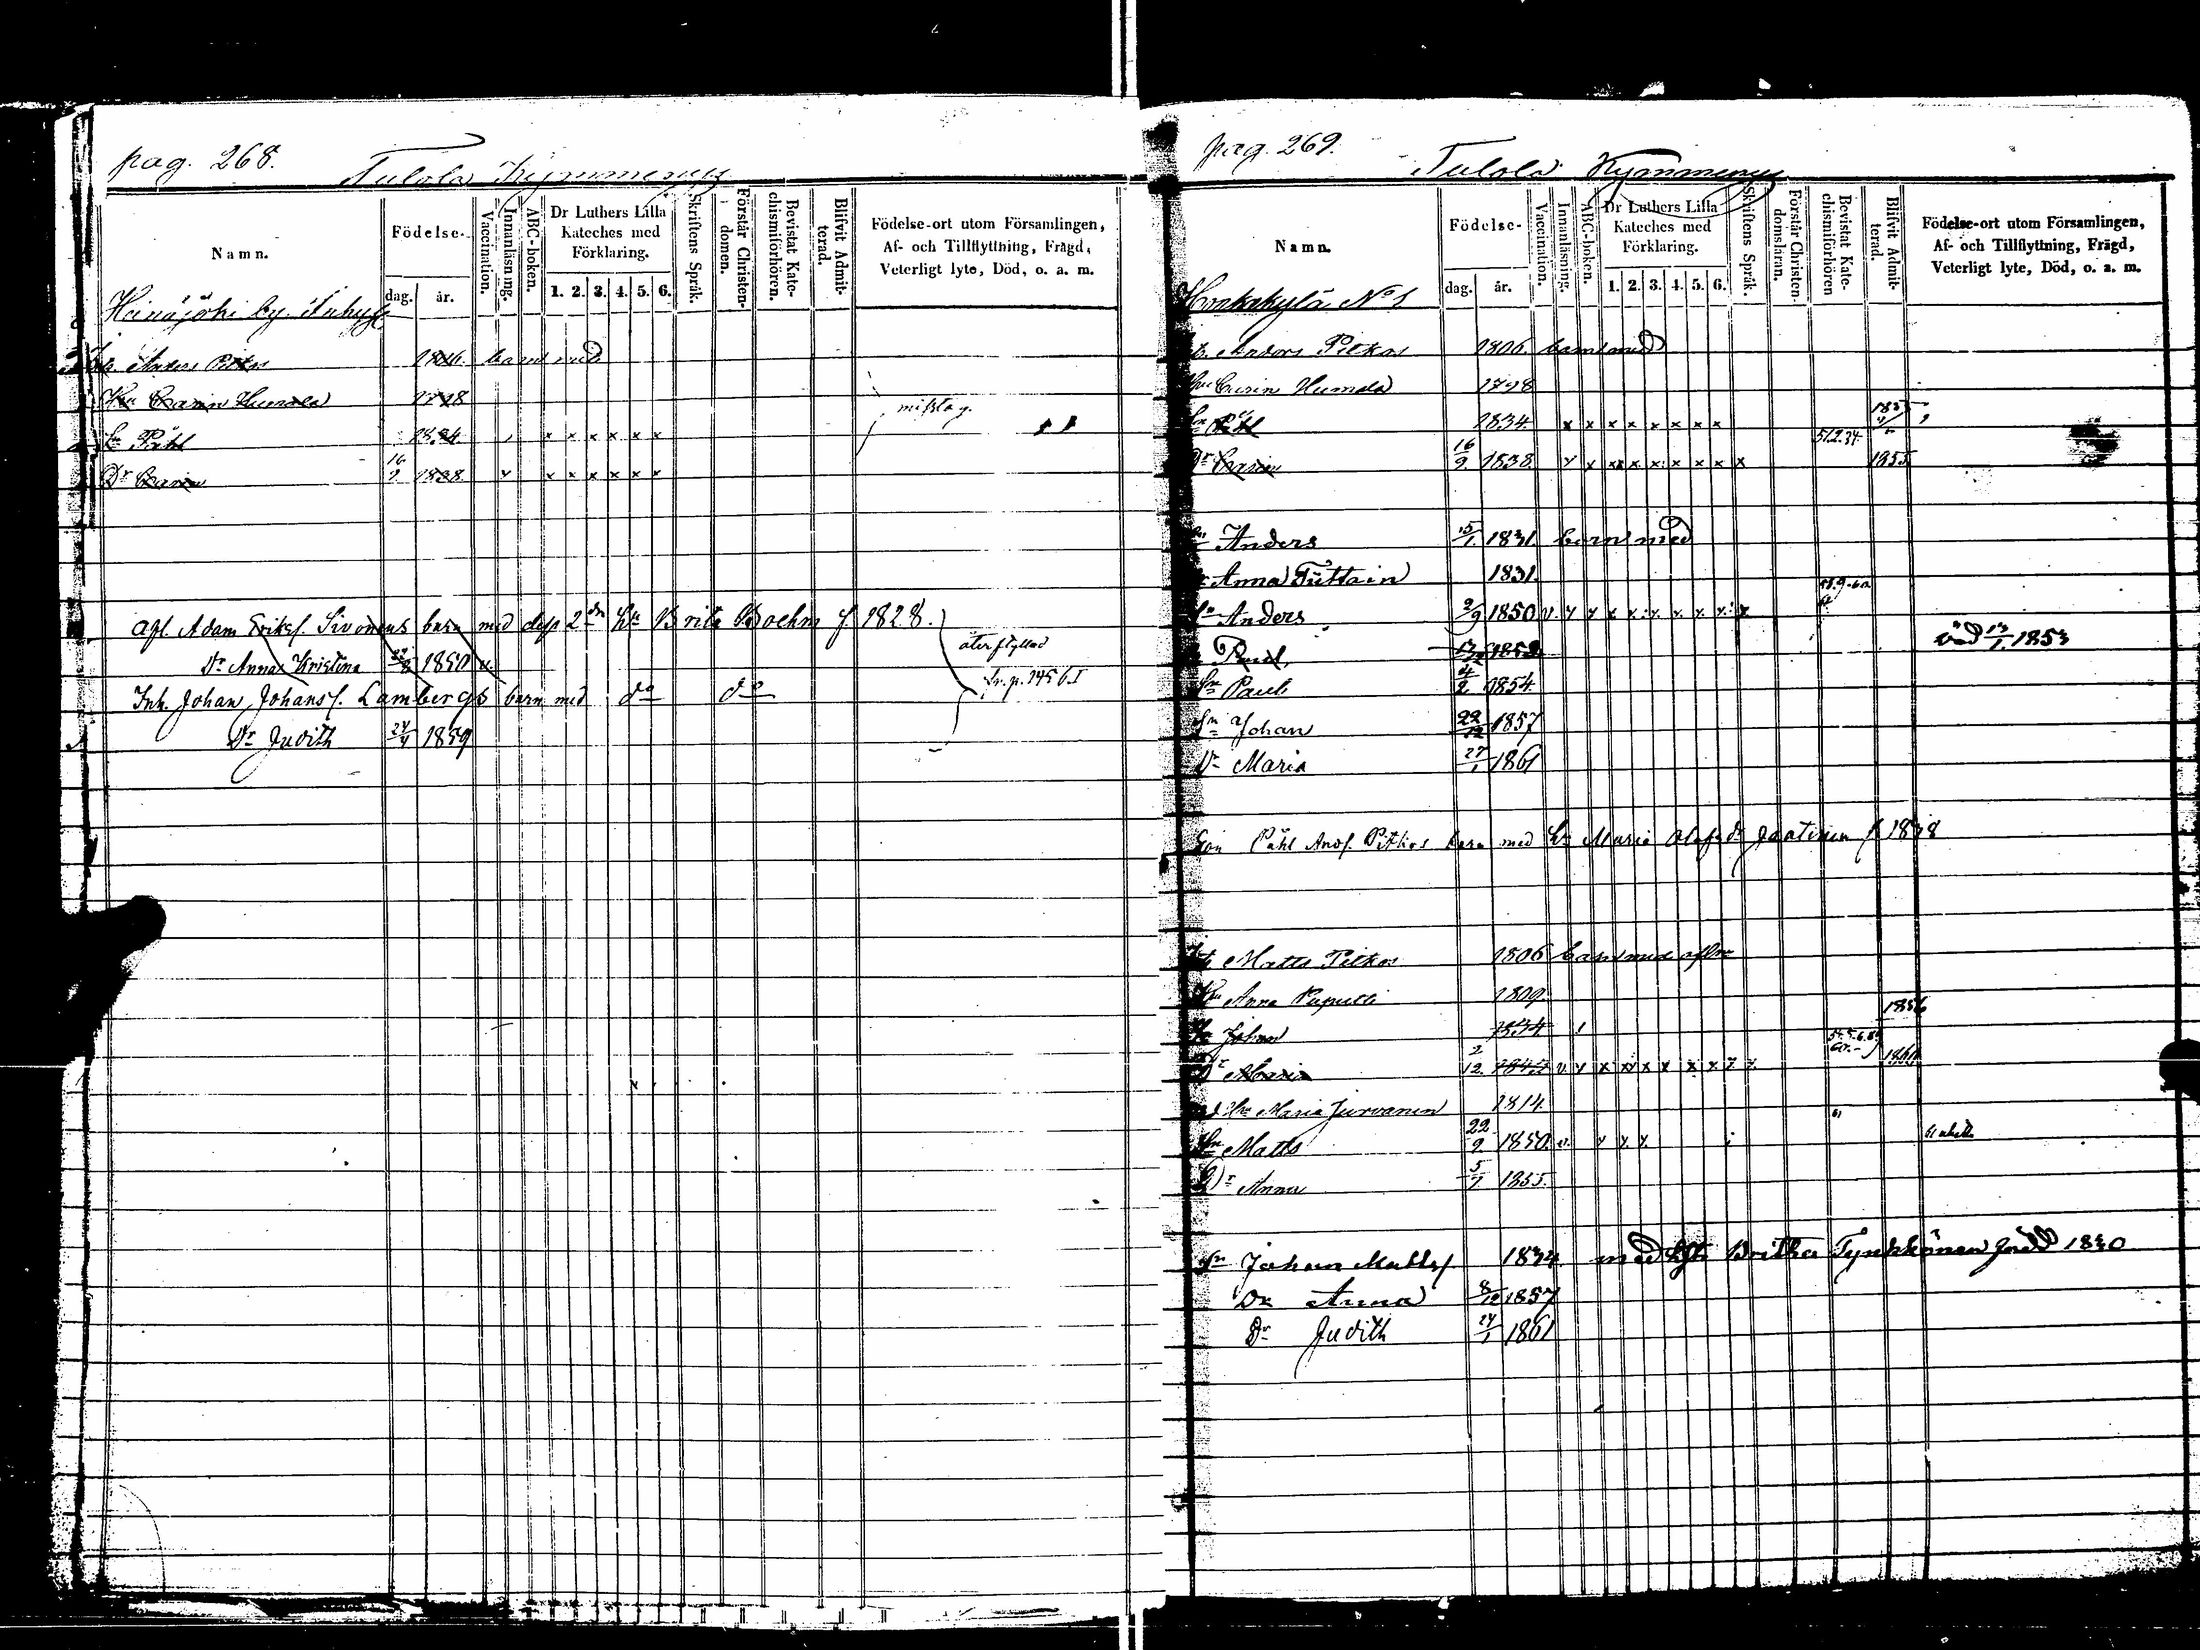 pag. 268.
Tulola Kymmenys
Namn.
Födelse-
dag. år.
Vaccination.
Innanläsning.
ABC-boken.
Dr Luthers Lilla Kateches med Förklaring.
1. 2. 3. 4. 5. 6.
Skriftens Språk.
Förstår Christendomen.
Bevistat Katechismiförhören.
Blifvit Admitterad.
Födelse-ort utom Församlingen,
Af- och Tillflyttning, Frägd,
Veterligt lyte, Död, o. a. m.
Heinäjöki by
Anders Pitkos 1806. barn med
Hu Carin Humala 1798
misstag.
Sn Påhl 1834 x x x x x x
Dr Carin 16/9 1838 x x x x x x
Agl. Adam Eriks. Sivonens barn med desp 2dn Hu Brita Boehm f 1828.
återflyttad
Dr Anna Kristina 1850 v.
Inh. Johan Johans. Lambergs barn med do do
Dr Judith 24/4 1859
pag. 269.
Tulola Kymmenys
Namn.
Födelse-
dag. år.
Vaccination.
Innanläsning.
ABC-boken.
Dr Luthers Lilla Kateches med Förklaring.
1. 2. 3. 4. 5. 6.
Skriftens Språk.
Förstår Christendomsläran.
Bevistat Katechismiförhören
Blifvit Admitterad.
Födelse-ort utom Församlingen,
Af- och Tillflyttning, Frägd,
Veterligt lyte, Död, o. a. m.
No 1
Anders Pitkos 1806 barn med
Hu Carin Humala 1798
Sn Påhl 1834 x x x x x x x x 1855
Dr Carin 16/9 1838. x x x x x x x x 51.2.34. 1855
Sn Anders 15/1 1831 barn med
Anna Tiittain 1831.
Sn Anders 2/9 1850 v. x x x x x x x x x
Paul 1852 död 13/1 1853
Sn Paul 4/2 1854
Sn Johan 22/12 1857
Dr Maria 27/1 1861
Son Påhl Ands. Pitkos barn med Hu Maria Olofsdr Jaatinen f 1838
Matts Pitkos 1806 barn med aflne
Hu Anna Puputti 1809.
Sn Johan 1834 1856
Dr Maria 2/12 1842 v. x x x x x x x x x 1860
Hu Maria Jurvanen 1814
Sn Matts 22/9 1850. v. x x x
Dr Anna 5/7 1855
Sn Johan Matts. 1834 med Hst. Britha Tynkkönen född 1830
Dr Anna 8/12 1857
Dr Judith 24/1 1861